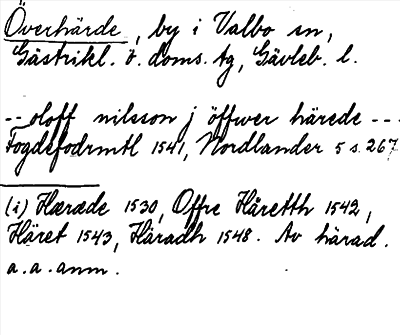 Överhärde, by i Valbo sn,
Gästrikl. ö. doms. tg, Gävleb. l.
-- oloff nilsson j öffwer härede ---
Fogdefodrmtl 1541, Nordlander 5 s. 267.
(i) Hæræde 1530, Offre Håretth 1542,
Häret 1543, Häradh 1548. Av härad.
a. a. anm.